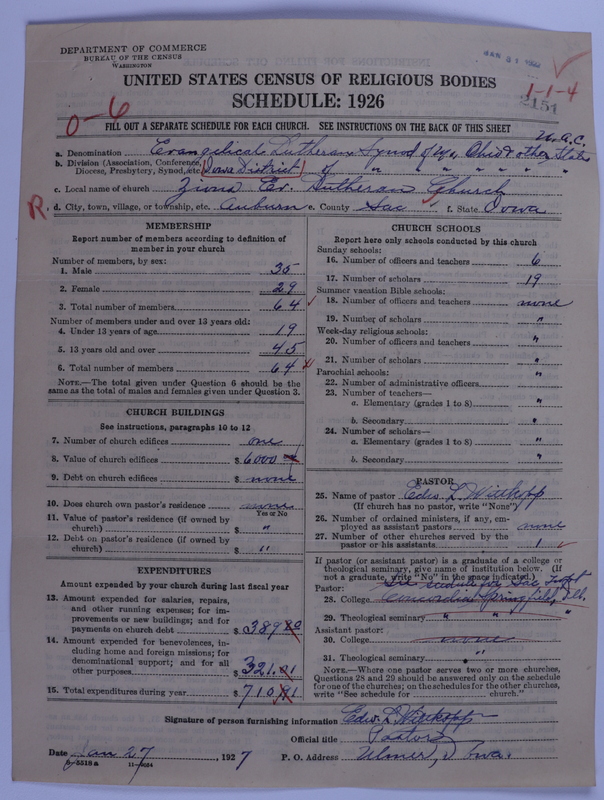 DEPARTMENT OF COMMERCE
BUREAU OF THE CENSUS
WASHINGTON
JAN 31
UNITED STATES CENSUS OF RELIGIOUS BODIES
SCHEDULE: 1926
1-1-4
2154
0-6
FILL OUT A SEPARATE SCHEDULE FOR EACH CHURCH. SEE INSTRUCTIONS ON THE BACK OF THIS SHEET
a. Denomination Evangelical Lutheran Synod of Mo, Ohio & other States
b. Division (Association, Conference, Diocese, Presbytery, Synod, etc.) Iowa District of " " " " "
c. Local name of church Zions Ev. Lutheran Church
R. d. City, town, village, or township, etc. Auburn e. County Sac f. State Iowa
MEMBERSHIP
Report number of members according to definition of
member in your church
Number of members, by sex:
1. Male 35
2. Female 29
3. Total number of members 64
Number of members under and over 13 years old:
4. Under 13 years of age 19
5. 13 years old and over 45
6. Total number of members 64
NOTE.—The total given under Question 6 should be the
same as the total of males and females given under Question 3.
CHURCH BUILDINGS
See instructions, paragraphs 10 to 12
7. Number of church edifices one
8. Value of church edifices $ 6000
9. Debt on church edifices $ none
10. Does church own pastor's residence
Yes or No
11. Value of pastor's residence (if owned by
church) $ "
12. Debt on pastor's residence (if owned by
church) $ "
EXPENDITURES
Amount expended by your church during last fiscal year
13. Amount expended for salaries, repairs,
and other running expenses; for im-
provements or new buildings; and for
payments on church debt $ 389
14. Amount expended for benevolences, in-
cluding home and foreign missions; for
denominational support; and for all
other purposes $ 321.
15. Total expenditures during year $ 710
CHURCH SCHOOLS
Report here only schools conducted by this church
Sunday schools:
16. Number of officers and teachers 6
17. Number of scholars 19
Summer vacation Bible schools:
18. Number of officers and teachers none
19. Number of scholars "
Week-day religious schools:
20. Number of officers and teachers "
21. Number of scholars "
Parochial schools:
22. Number of administrative officers "
23. Number of teachers—
a. Elementary (grades 1 to 8) "
b. Secondary "
24. Number of scholars—
a. Elementary (grades 1 to 8) "
b. Secondary "
PASTOR
25. Name of pastor Edw. L. Wittkopp
(If church has no pastor, write "None")
26. Number of ordained ministers, if any, em-
ployed as assistant pastors none
27. Number of other churches served by the
pastor or his assistants 1
If pastor (or assistant pastor) is a graduate of a college or
theological seminary, give name of institution below. (If
not a graduate, write "No" in the space indicated.)
Pastor: See schedule for Sac
28. College Concordia Springfield, Ill.
29. Theological seminary " " "
Assistant pastor:
30. College none
31. Theological seminary "
NOTE.—Where one pastor serves two or more churches,
Questions 28 and 29 should be answered only on the schedule
for one of the churches; on the schedules for the other churches,
write "See schedule for church."
Signature of person furnishing information Edw. L. Wittkopp
Official title Pastor
Date Jan 27, 1927 P. O. Address Ulmer, Iowa.
11-9054